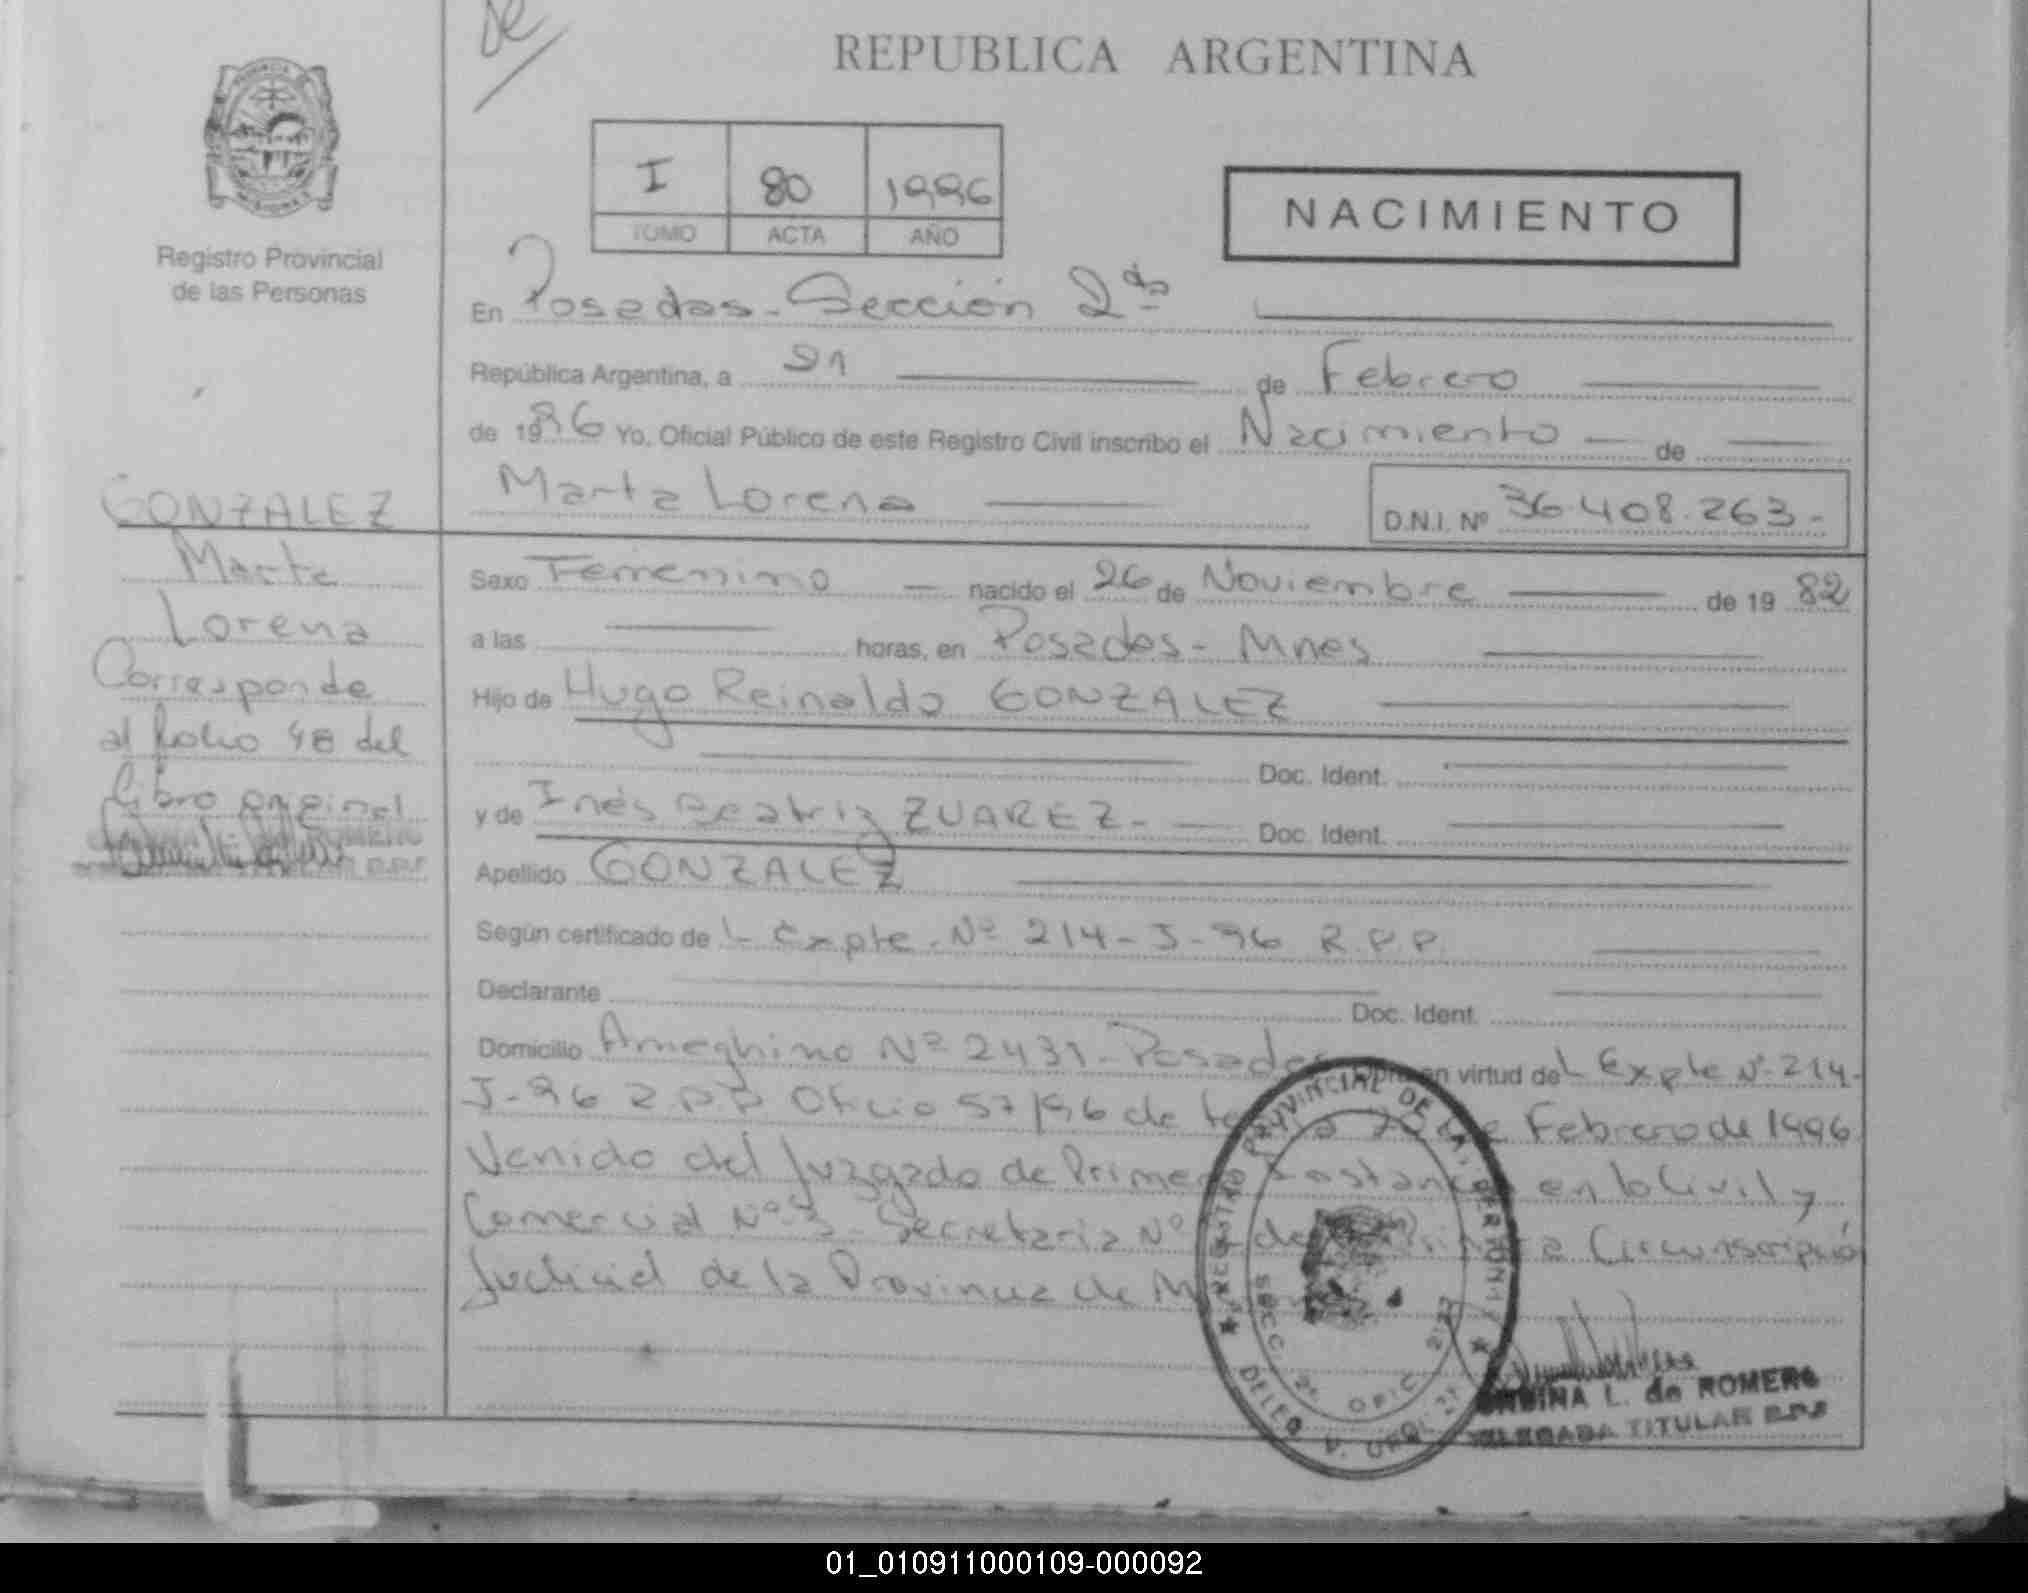 REPUBLICA ARGENTINA
I 80 1996
TOMO ACTA AÑO
NACIMIENTO
Registro Provincial
de las Personas
En Posadas - Sección 2da
República Argentina, a 21 de Febrero
de 1996 Yo, Oficial Público de este Registro Civil inscribo el Nacimiento de
Marta Lorena D.N.I. Nº 36.408.263.-
GONZALEZ
Marta
Lorena
Corresponde
al folio 48 del
libro original
Sexo Femenino nacido el 26 de Noviembre de 1982
a las horas, en Posadas - Mnes
Hijo de Hugo Reinaldo GONZALEZ
Doc. Ident.
y de Inés Beatriz ZUAREZ - Doc. Ident.
Apellido GONZALEZ
Según certificado de L Expte. Nº 214-J-96 R.P.P.
Declarante Doc. Ident.
Domicilio Ameghino Nº 2431 - Posadas en virtud del Expte Nº 214-
J-96 R.P.P Oficio 57/96 de Febrero de 1996
Venido del Juzgado de Primera Instancia en lo Civil y
Comercial Nº 3 - Secretaria Nº de Circunscripció
Judicial de la Provincia de
REGISTRO PROVINCIAL DE LAS PERSONAS
SECC. 2ª OFIC.
L. de ROMERO
DELEGADA TITULAR R.P.P
01_010911000109-000092